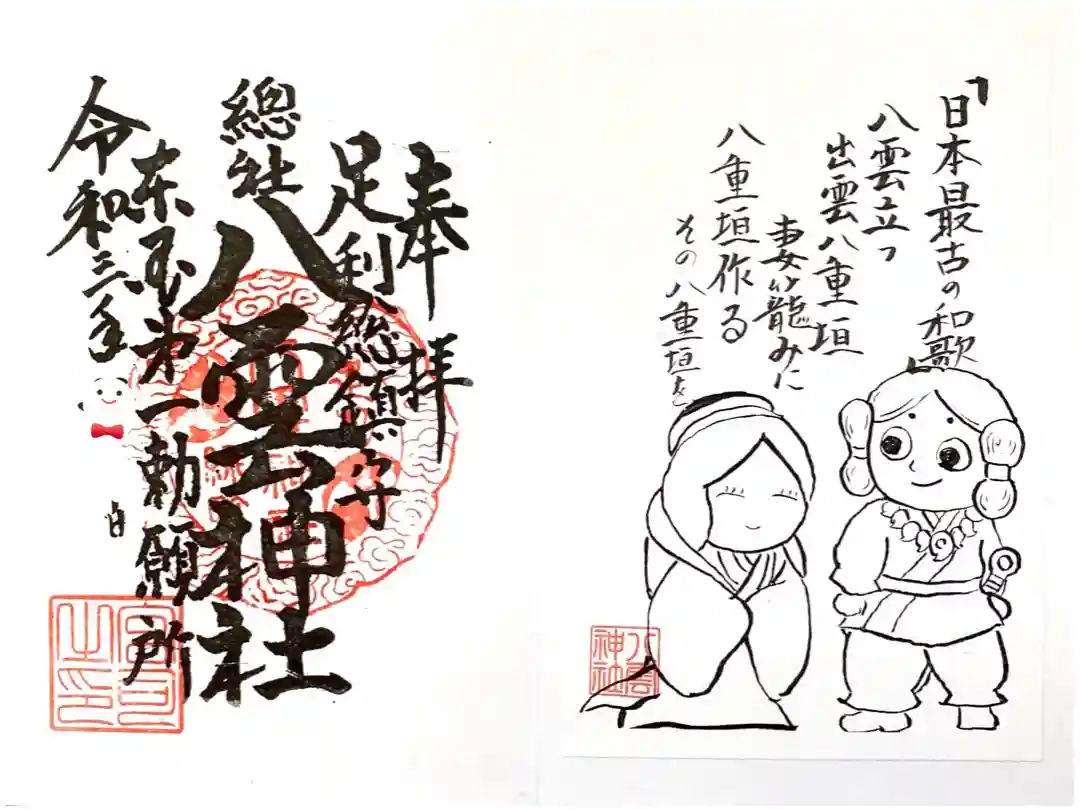 奉拝
足利総鎮守
總社
八雲神社
東国第一勅願所
令和三年
宮司之印
「日本最古の和歌
八雲立つ
出雲八重垣
妻籠みに
八重垣作る
その八重垣を
八雲神社